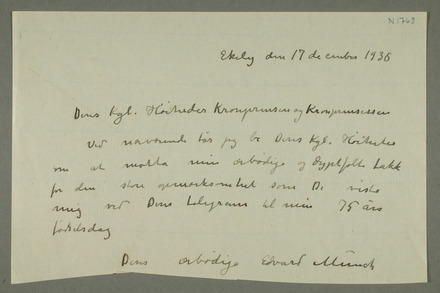 N 1763
Ekely den 17 december 1938
Deres Kgl. Høiheder Kronprinsen og Kronprinsessen
Ved nærværende tør jeg be Deres Kgl. Høiheder
om at motta min ærbødige og dyptfølte takk
for den store opmerksomhet som De viste
mig ved Deres telegram til min 75 års
fødselsdag
Deres ærbødige Edvard Munch